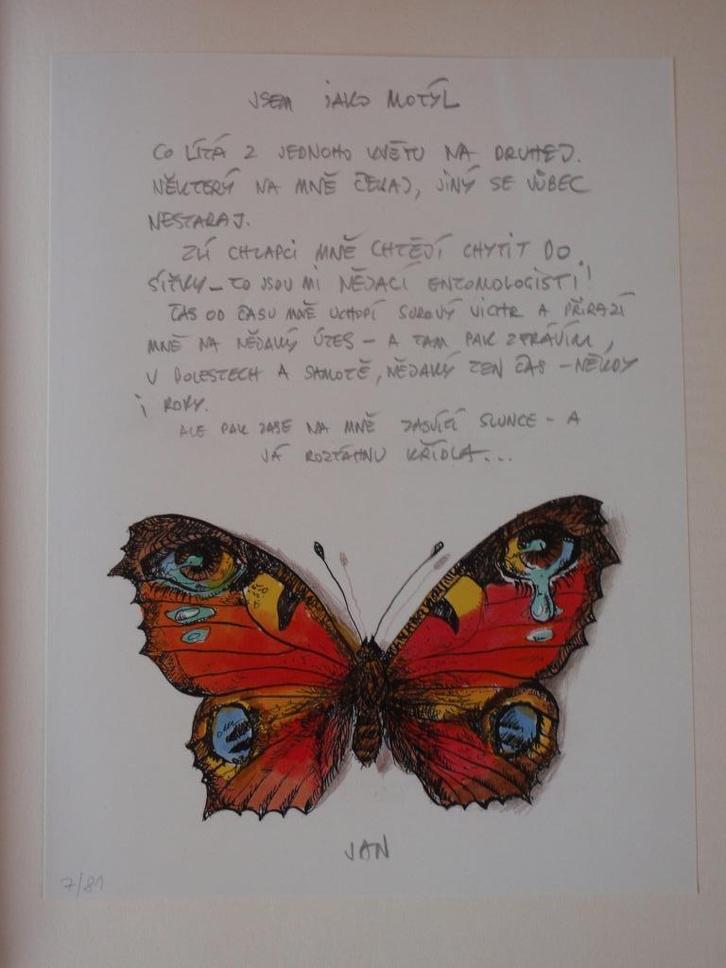 JSEM JAKO MOTÝL
CO LÍTÁ Z JEDNOHO KVĚTU NA DRUHEJ.
NĚKTERÝ NA MNĚ ČEKAJ, JINÝ SE VŮBEC
NESTARAJ.
ZLÍ CHLAPCI MNĚ CHTĚJÍ CHYTIT DO
SÍŤKY – TO JSOU MI NĚJACÍ ENTOMOLOGISTI!
ČAS OD ČASU MNĚ UCHOPÍ SUROVÝ VICHR A PŘIRAZÍ
MNĚ NA NĚJAKÝ ÚTES – A TAM PAK ZTRÁVÍM,
V BOLESTECH A SAMOTĚ, NĚJAKÝ TEN ČAS – NĚKDY
I ROKY.
ALE PAK ZASE NA MNĚ ZASVÍTÍ SLUNCE – A
JÁ ROZTÁHNU KŘÍDLA...
JAN
7/81